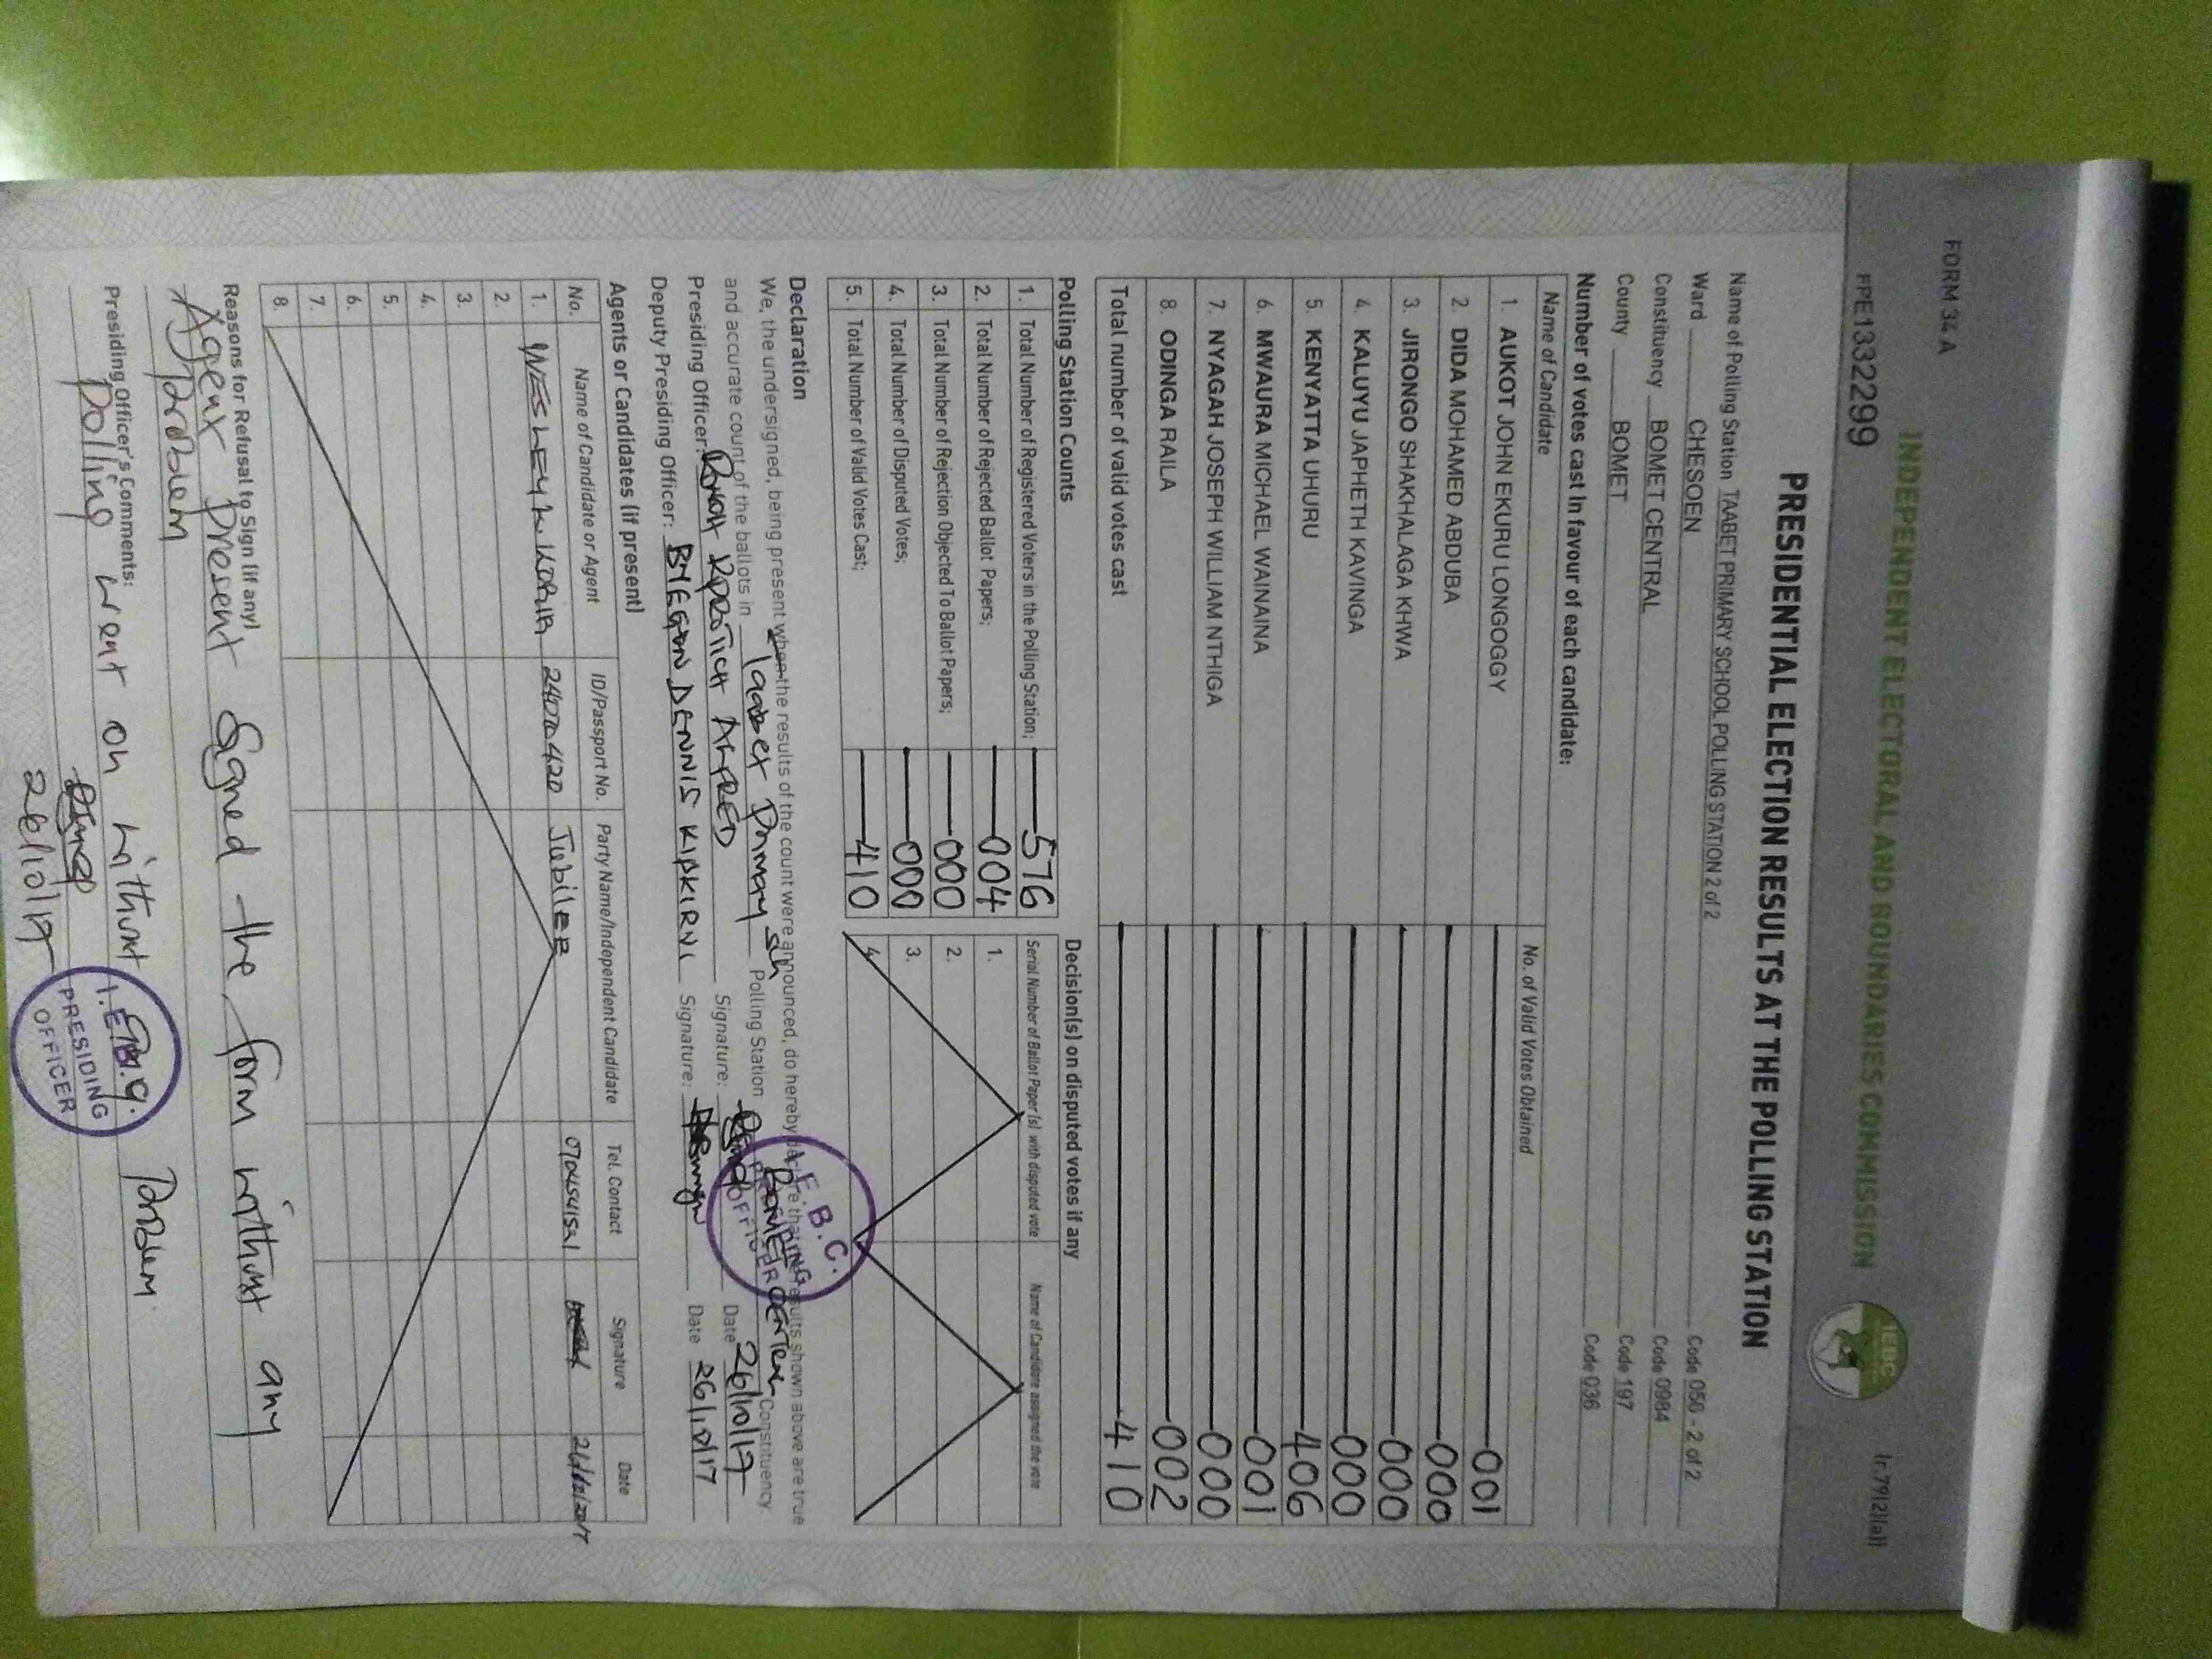 FORM 34A
INDEPENDENT ELECTORAL AND BOUNDARIES COMMISSION
IEBC
FPE1332299
PRESIDENTIAL ELECTION RESULTS AT THE POLLING STATION
Name of Polling Station TAABET PRIMARY SCHOOL POLLING STATION 2 of 2 Code 050 - 2 of 2
Ward CHESOEN Code 0984
Constituency BOMET CENTRAL Code 197
County BOMET Code 036
Number of votes cast In favour of each candidate:
Name of Candidate No. of Valid Votes Obtained
1. AUKOT JOHN EKURU LONGOGGY 001
2. DIDA MOHAMED ABDUBA 000
3. JIRONGO SHAKHALAGA KHWA 000
4. KALUYU JAPHETH KAVINGA 000
5. KENYATTA UHURU 406
6. MWAURA MICHAEL WAINAINA 001
7. NYAGAH JOSEPH WILLIAM NTHIGA 000
8. ODINGA RAILA 002
Total number of valid votes cast 410
Polling Station Counts
1. Total Number of Registered Voters in the Polling Station; 576
2. Total Number of Rejected Ballot Papers; 004
3. Total Number of Rejection Objected To Ballot Papers; 000
4. Total Number of Disputed Votes; 000
5. Total Number of Valid Votes Cast; 410
Decision(s) on disputed votes if any
Serial Number of Ballot Paper (s) with disputed vote Name of Candidate assigned the vote
1.
2.
3.
4.
Declaration
We, the undersigned, being present when the results of the count were announced, do hereby declare that the results shown above are true
and accurate count of the ballots in Taabet Primary Sch Polling Station BOMET CENTRAL Constituency.
Presiding Officer: KEPROTICH ALFRED Signature: Date 26/10/17
Deputy Presiding Officer: BYEGON DENNIS KIPKIRUI Signature: Date 26/10/17
I.E.B.C.
PRESIDING
OFFICER
Agents or Candidates (if present)
No. Name of Candidate or Agent ID/Passport No. Party Name/Independent Candidate Tel. Contact Signature Date
1. WESLEY K. KORIR 24000420 JubilEE 0704541521 26/10/2017
2.
3.
4.
5.
6.
7.
8.
Reasons for Refusal to Sign (if any)
Agent Present Signed the form without any
Problem
Presiding Officer's Comments:
Polling went on without Problem.
26/10/17
I.E.B.C.
PRESIDING
OFFICER